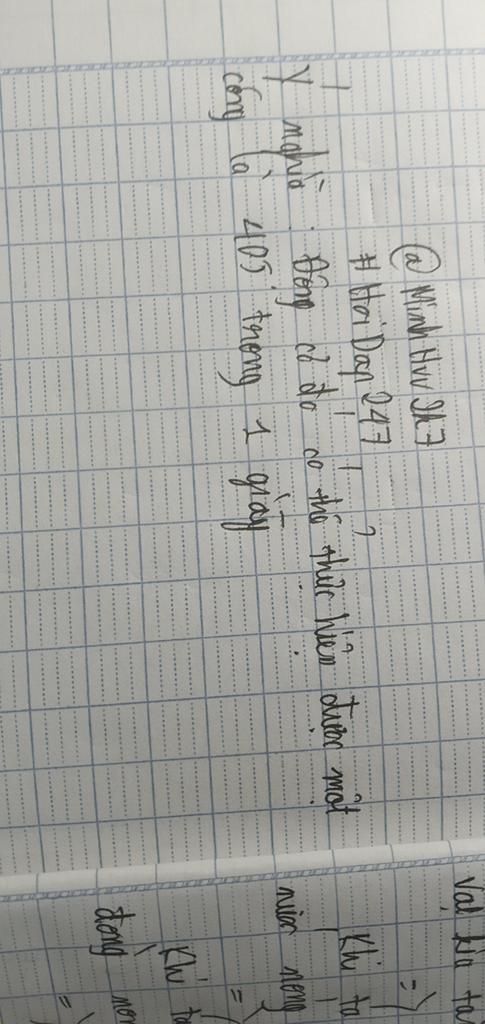 @MinhHuu9A7
#HoiDap247
Ý nghĩa: Động cơ đó có thể thực hiện được một
công là 405 trong 1 giây
Vật liệu ta
=)
Khi ta
nước nóng
=)
Khi ta
đồng
=)